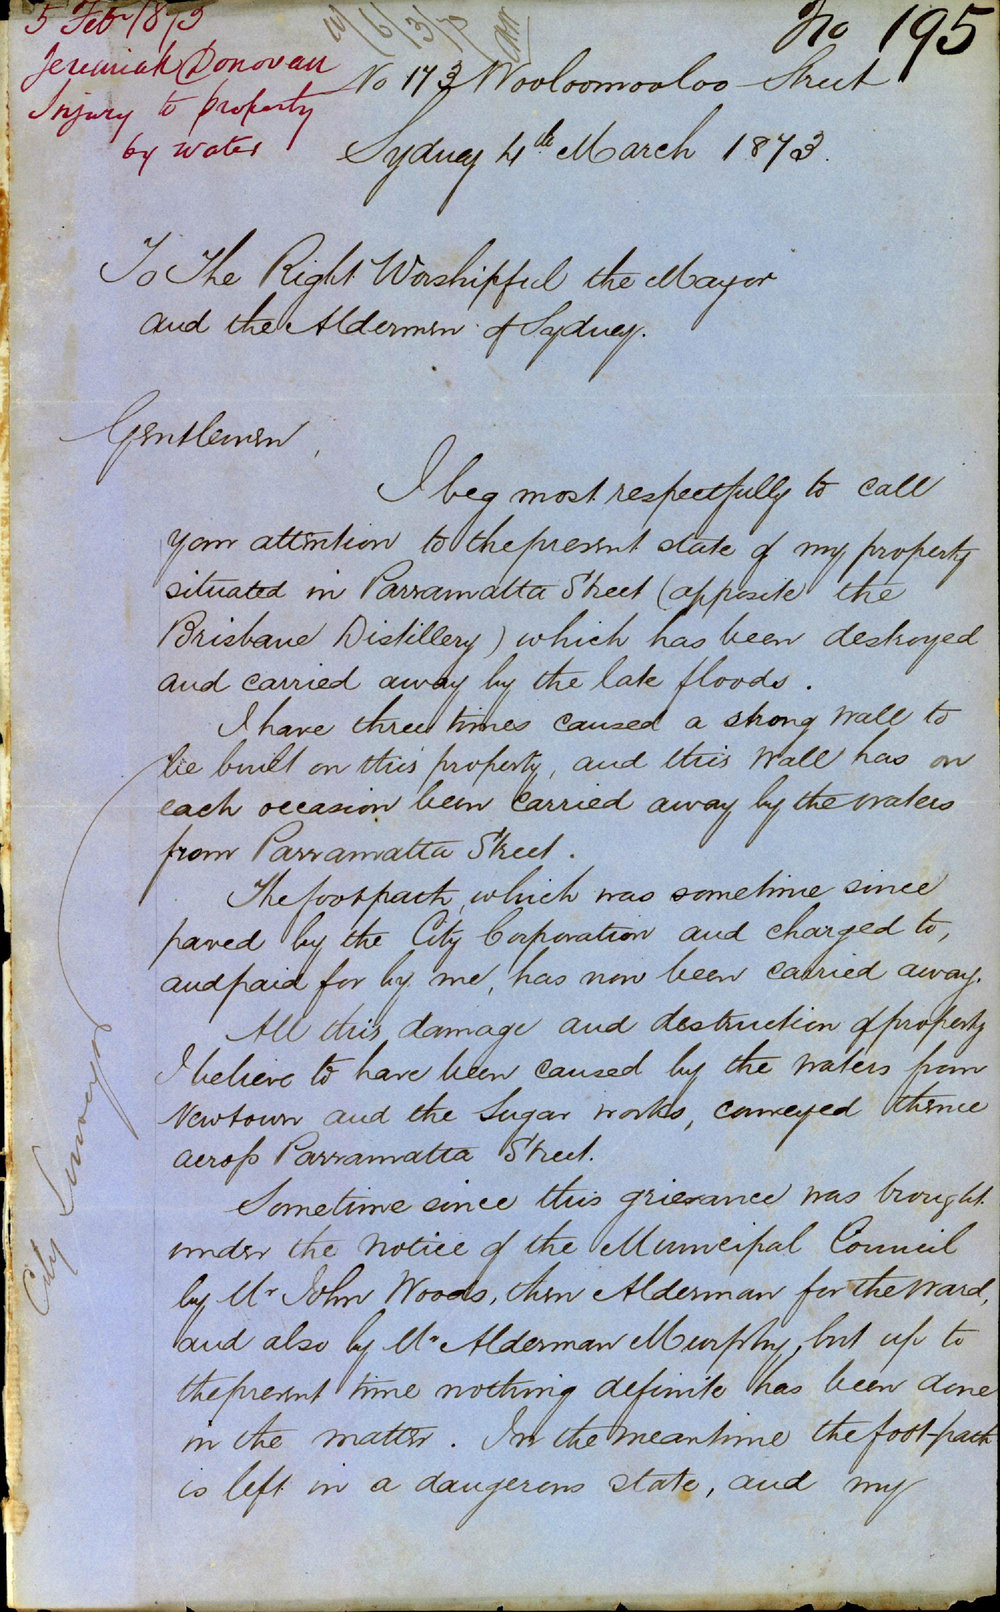 No 195
5 Feb 1873
Jeremiah Donovan
Injury to property
by water
No 173 Wooloomooloo Street
Sydney 4th March 1873.
To The Right Worshipful the Mayor
and the Aldermen of Sydney.
Gentlemen,
I beg most respectfully to call
your attention to the present state of my property
situated in Parramatta Street (opposite the
Brisbane Distillery) which has been destroyed
and carried away by the late floods.
I have three times caused a strong wall to
be built on this property, and this wall has on
each occasion been carried away by the waters
from Parramatta Street.
The footpath, which was sometime since
paved by the City Corporation and charged to,
and paid for by me, has now been carried away.
All this damage and destruction of property
I believe to have been caused by the waters from
Newtown and the Sugar works, conveyed thence
across Parramatta Street.
Sometime since this grievance was brought
under the notice of the Municipal Council
by Mr John Woods, then Alderman for the ward,
and also by Mr Alderman Murphy, but up to
the present time nothing definite has been done
in the matter. In the meantime the foot-path
is left in a dangerous state, and my
City Surveyor